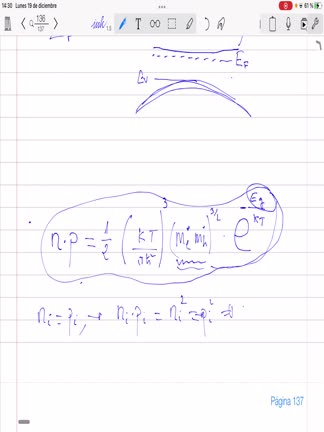 14:30 Lunes 19 de diciembre
61 %
136
137
E_F
E_F
E_v
n·p = 1/2 (KT/πħ²)³ (m_e* m_h*)^{3/2} · e^{-E_g/KT}
n_i = p_i, → n_i·p_i = n_i² = p_i² ⇒
Página 137